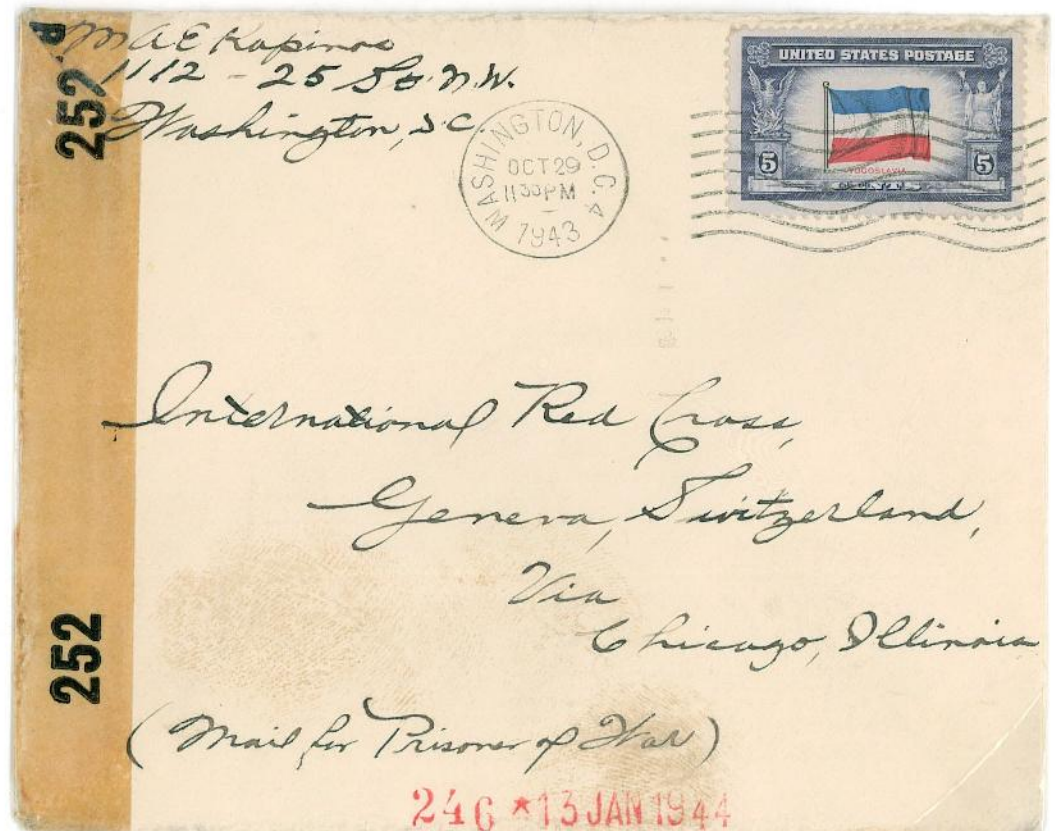 252
252
A E Kapinos
1112 - 25 St. N.W.
Washington, D.C.
WASHINGTON, D.C. 4
OCT 29
11 30 PM
1943
UNITED STATES POSTAGE
5 5
YUGOSLAVIA
CENTS
International Red Cross,
Geneva, Switzerland,
Via
Chicago, Illinois
(Mail for Prisoner of War)
246 * 13 JAN 1944